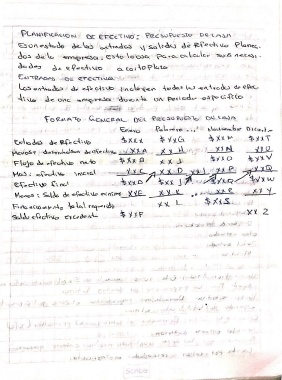 PLANIFICACION DE EFECTIVO: PRESUPUESTO DE CAJA
Es un estado de las entradas y salidas de efectivo planea-
das de la empresa. Esta la usa para calcular sus necesi-
dades de efectivo a corto plazo
ENTRADAS DE EFECTIVO
Las entradas de efectivo incluyen todas las entradas de efec
tivo de una empresa durante un periodo especifico
FORMATO GENERAL DEL PRESUPUESTO DE CAJA
Enero Febrero ... Noviembre Diciem.
Entradas de Efectivo $XXX $XXG $XXM $XXT
Menos: desembolsos de efectivo XXA XXH XXN XXU
Flujo de efectivo neto $XXB XXI $XXO $XXV
Mas: efectivo inicial XXC XXD XXJ XXP XXQ
Efectivo final $XXD $XXJ $XXQ $XXW
Menos: Saldo de efectivo minimo XXE XXK ... XXR XXY
Financiamiento total requerido XXL $XXS
Saldo efectivo excedente $XXF XXZ